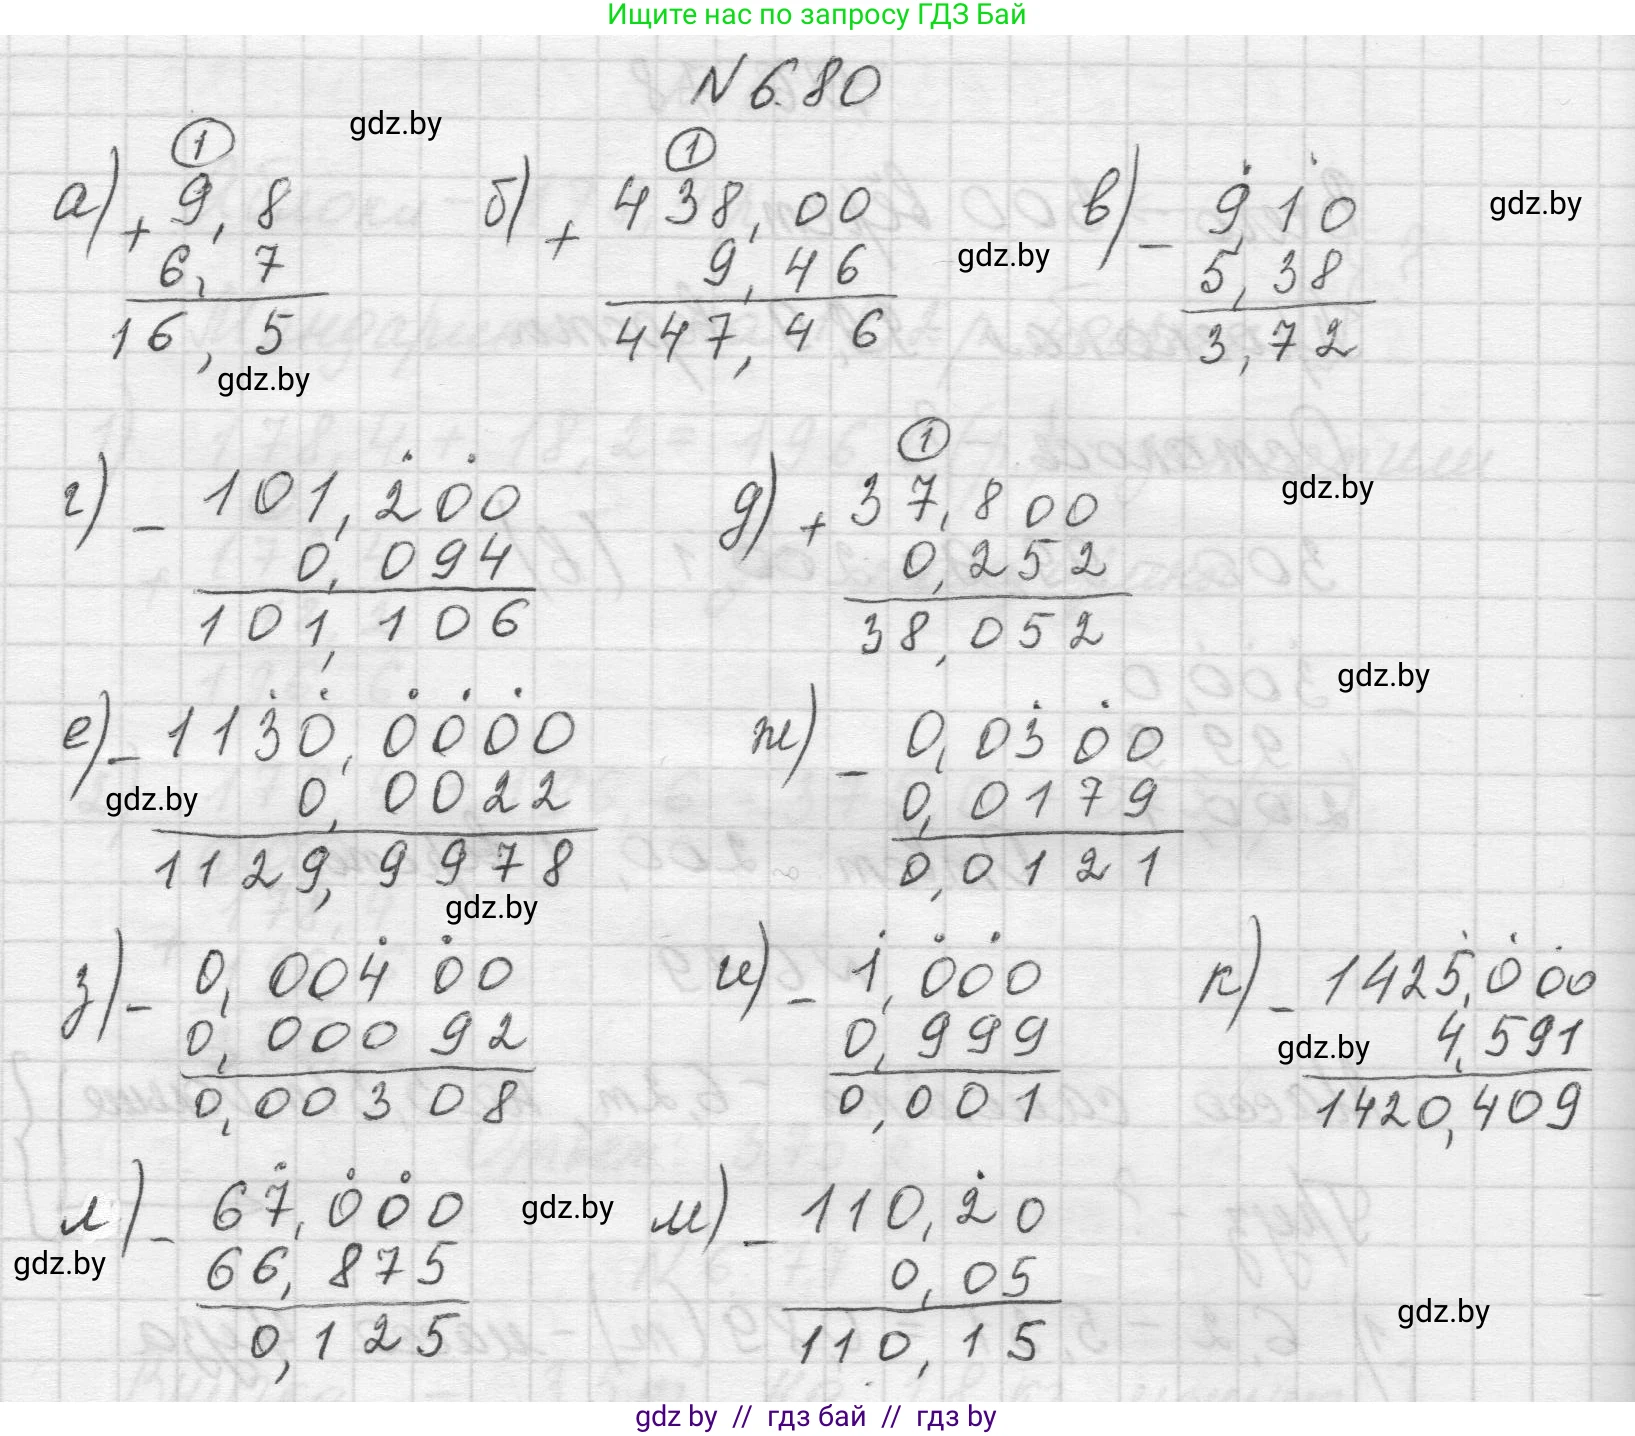 Ищите нас по запросу ГДЗ Бай
N 6.80
gdz.by
а) + 9,8
6,7
16,5
1
gdz.by
б) + 438,00
9,46
447,46
1
gdz.by
в) - 9,10
5,38
3,72
gdz.by
г) - 101,200
0,094
101,106
д) + 37,800
0,252
38,052
1
gdz.by
gdz.by
е) - 1130,0000
0,0022
1129,9978
gdz.by
gdz.by
ж) - 0,0300
0,0179
0,0121
з) - 0,00400
0,00092
0,00308
и) - 1,000
0,999
0,001
к) - 1425,000
4,591
1420,409
gdz.by
л) - 67,000
66,875
0,125
gdz.by
gdz.by
м) - 110,20
0,05
110,15
gdz.by
gdz by // гдз бай // гдз by